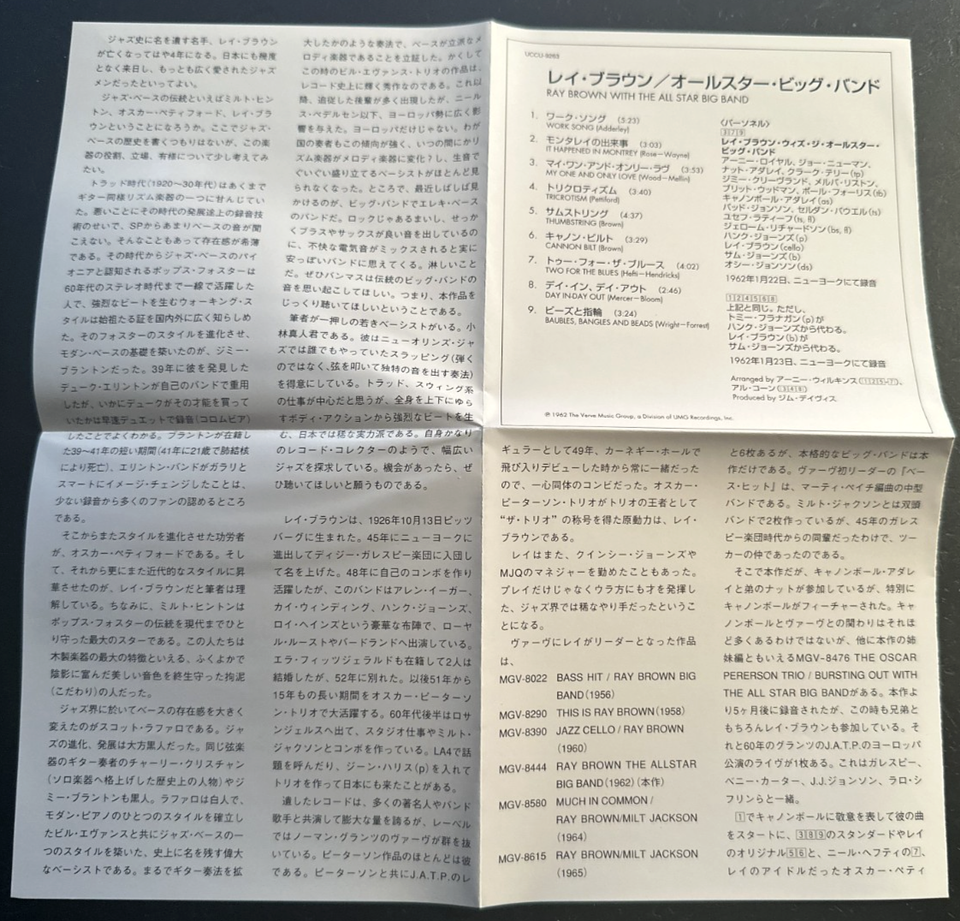 ジャズ史に名を遺す名手、レイ・ブラウン
が亡くなってはや4年になる。日本にも幾度
となく来日し、もっとも広く愛されたジャズ
メンだったといってよい。
ジャズ・ベースの伝統といえばミルト・ヒン
トン、オスカー・ペティフォード、レイ・ブラ
ウンということになろうか。ここでジャズ・
ベースの歴史を書くつもりはないが、この楽
器の役割、立場、有様について少し考えてみ
たい。
トラッド時代(1920〜30年代)はあくまで
ギター同様リズム楽器の一つに甘んじてい
た。悪いことにその時代の発展途上の録音技
術のせいで、SPからあまりベースの音が聞
こえない。そんなこともあって存在感が希薄
である。その時代からジャズ・ベースのパイ
オニアと認知されるポップス・フォスターは
60年代のステレオ時代まで一線で活躍した
人で、強烈なビートを生むウォーキング・ス
タイルは始祖たる証を国内外に広く知らしめ
た。そのフォスターのスタイルを進化させ、
モダン・ベースの基礎を築いたのが、ジミー・
ブラントンだった。39年に彼を発見した
デューク・エリントンが自己のバンドで重用
したが、いかにデュークがその才能を買って
いたかは早速デュエットで録音(コロムビア)
したことでよくわかる。ブラントンが在籍し
た39〜41年の短い期間(41年に21歳で肺結核
により死亡)、エリントン・バンドがガラリと
スマートにイメージ・チェンジしたことは、
少ない録音から多くのファンの認めるところ
である。
そこからまたスタイルを進化させた功労者
が、オスカー・ペティフォードである。そし
て、それから更にまた近代的なスタイルに昇
華させたのが、レイ・ブラウンだと筆者は理
解している。ちなみに、ミルト・ヒントンは
ポップス・フォスターの伝統を現代までひと
り守った最大のスターである。この人たちは
木製楽器の最大の特徴といえる、ふくよかで
陰影に富んだ美しい音色を終生守った拘泥
(こだわり)の人だった。
ジャズ界に於いてベースの存在感を大きく
変えたのがスコット・ラファロである。ジャ
ズの進化、発展は大方黒人だった。同じ弦楽
器のギター奏者のチャーリー・クリスチャン
(ソロ楽器へ格上げした歴史上の人物)やジ
ミー・ブラントンも黒人。ラファロは白人で、
モダン・ピアノのひとつのスタイルを確立し
たビル・エヴァンスと共にジャズ・ベースの一
つのスタイルを築いた、史上に名を残す偉大
なベーシストである。まるでギター奏法を拡
大したかのような奏法で、ベースが立派なメ
ロディ楽器であることを立証した。かくして
この時のビル・エヴァンス・トリオの作品は、
レコード史上に輝く秀作なのである。これ以
降、追従した後輩が多く出現したが、ニール
ス・ペデルセン以下、ヨーロッパ勢に広く影
響を与えた。ヨーロッパだけじゃない。わが
国の奏者もこの傾向が強く、いつの間にかリ
ズム楽器がメロディ楽器に変化?し、生音で
ぐいぐい盛り立てるベーシストがほとんど見
られなくなった。ところで、最近しばしば見
かけるのが、ビッグ・バンドでエレキ・ベース
のバンドだ。ロックじゃあるまいし、せっか
くブラスやサックスが良い音を出しているの
に、不快な電気音がミックスされると実に
安っぽいバンドに思えてくる。淋しいこと
だ。ぜひバンマスは伝統的ビッグ・バンドの
音を思い起こしてほしい。つまり、本作品を
じっくり聴いてほしいということである。
筆者が一押しの若きベーシストがいる。小
林真人君である。彼はニューオリンズ・ジャ
ズでは誰でもやっていたスラッピング(弾く
のではなく、弦を叩いて独特の音を出す奏法)
を得意にしている。トラッド、スウィング系
の仕事が中心だと思うが、全身を上下にゆら
すボディ・アクションから強烈なビートを生
む、日本では稀な実力派である。自身かなり
のレコード・コレクターのようで、幅広い
ジャズを探求している。機会があったら、ぜ
ひ聴いてほしいと願うものである。
レイ・ブラウンは、1926年10月13日ピッツ
バーグに生まれた。45年にニューヨークに
進出してディジー・ガレスピー楽団に入団し
て名を上げた。48年に自己のコンボを作り
活躍したが、このバンドはアレン・イーガー、
カイ・ウィンディング、ハンク・ジョーンズ、
ロイ・ヘインズという豪華な布陣で、ローヤ
ル・ルーストやバードランドへ出演している。
エラ・フィッツジェラルドも在籍して2人は
結婚したが、52年に別れた。以後51年から
15年もの長い期間をオスカー・ピーターソ
ン・トリオで大活躍する。60年代後半はロサ
ンジェルスへ出て、スタジオ仕事やミルト・
ジャクソンとコンボを作っている。LA4で話
題を呼んだり、ジーン・ハリス(p)を入れて
トリオを作って日本にも来たことがある。
遺したレコードは、多くの著名人やバンド
歌手と共演して膨大な量を誇るが、レーベル
ではノーマン・グランツのヴァーヴが群を抜
いている。ピーターソン作品のほとんどは彼
である。ピーターソンと共にJ.A.T.P.のレ
UCCU-5055
レイ・ブラウン/オールスター・ビッグ・バンド
RAY BROWN WITH THE ALL STAR BIG BAND
1. ワーク・ソング (5:23)
WORK SONG (Adderley)
2. モンタレイの出来事 (3:03)
IT HAPPENED IN MONTREY (Rose−Wayne)
3. マイ・ワン・アンド・オンリー・ラヴ (3:53)
MY ONE AND ONLY LOVE (Wood−Mellin)
4. トリクロティズム (3:40)
TRICROTISM (Pettiford)
5. サムストリング (4:37)
THUMBSTRING (Brown)
6. キャノン・ビルト (3:29)
CANNON BILT (Brown)
7. トゥー・フォー・ザ・ブルース (4:02)
TWO FOR THE BLUES (Hefti−Hendricks)
8. デイ・イン、デイ・アウト (2:46)
DAY IN-DAY OUT (Mercer−Bloom)
9. ビーズと指輪 (3:24)
BAUBLES, BANGLES AND BEADS (Wright−Forrest)
〈パーソネル〉
3 7 9
レイ・ブラウン・ウィズ・ジ・オールスター・
ビッグ・バンド
アーニー・ロイヤル、ジョー・ニューマン、
ナット・アダレイ、クラーク・テリー(tp)
ジミー・クリーヴランド、メルバ・リストン、
ブリット・ウッドマン、ポール・フォーリス(tb)
キャノンボール・アダレイ(as)
バッド・ジョンソン、セルダン・パウエル(ts)
ユセフ・ラティーフ(ts, fl)
ジェローム・リチャードソン(bs, fl)
ハンク・ジョーンズ(p)
レイ・ブラウン(cello)
サム・ジョーンズ(b)
オシー・ジョンソン(ds)
1962年1月22日、ニューヨークにて録音
1 2 4 5 6 8
上記と同じ。ただし、
トミー・フラナガン(p)が
ハンク・ジョーンズから代わる。
レイ・ブラウン(b)が
サム・ジョーンズから代わる。
1962年1月23日、ニューヨークにて録音
Arranged by アーニー・ウィルキンス(1 2 5-7)、
アル・コーン(3 4 8)
Produced by ジム・デイヴィス
℗ 1962 The Verve Music Group, a Division of UMG Recordings, Inc.
ギュラーとして49年、カーネギー・ホールで
飛び入りデビューした時から常に一緒だった
ので、一心同体のコンビだった。オスカー・
ピーターソン・トリオがトリオの王者として
“ザ・トリオ”の称号を得た原動力は、レイ・
ブラウンである。
レイはまた、クインシー・ジョーンズや
MJQのマネジャーを勤めたこともあった。
プレイだけじゃなくウラ方にも才を発揮し
た、ジャズ界では稀なやり手だったというこ
とになる。
ヴァーヴにレイがリーダーとなった作品
は、
MGV-8022 BASS HIT / RAY BROWN BIG
BAND(1956)
MGV-8290 THIS IS RAY BROWN(1958)
MGV-8390 JAZZ CELLO / RAY BROWN
(1960)
MGV-8444 RAY BROWN THE ALLSTAR
BIG BAND(1962)(本作)
MGV-8580 MUCH IN COMMON /
RAY BROWN/MILT JACKSON
(1964)
MGV-8615 RAY BROWN/MILT JACKSON
(1965)
と6枚あるが、本格的なビッグ・バンドは本
作だけである。ヴァーヴ初リーダーの『ベー
ス・ヒット』は、マーティ・ペイチ編曲の中型
バンドである。ミルト・ジャクソンとは双頭
バンドで2枚作っているが、45年のガレス
ピー楽団時代からの同輩だったわけで、ツー
カーの仲であったのである。
そこで本作だが、キャノンボール・アダレ
イと弟のナットが参加しているが、特別に
キャノンボールがフィーチャーされた。キャ
ノンボールとヴァーヴとの関わりはそれほ
ど多くあるわけではないが、他に本作の姉
妹編ともいえるMGV-8476 THE OSCAR
PERERSON TRIO / BURSTING OUT WITH
THE ALL STAR BIG BANDがある。本作よ
り5ヶ月後に録音されたが、この時も兄弟と
もちろんレイ・ブラウンも参加している。そ
れと60年のグランツのJ.A.T.P.のヨーロッパ
公演のライヴが1枚ある。これはガレスピー、
ベニー・カーター、J.J.ジョンソン、ラロ・シ
フリンらと一緒。
1でキャノンボールに敬意を表して彼の曲
をスタートに、3 8 9のスタンダードやレイ
のオリジナル5 6と、ニール・ヘフティの7、
レイのアイドルだったオスカー・ペティ